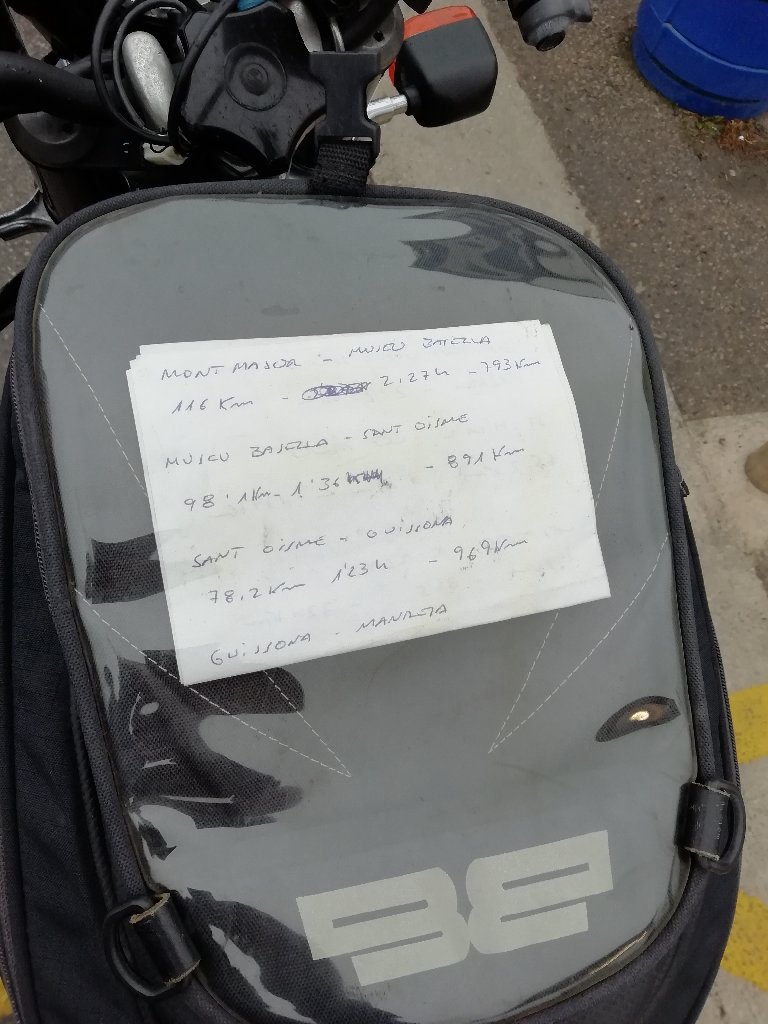 MONTMAJOR - MUSEU BASELLA
116 Km - 2,27h - 793Km
MUSEU BASELLA - SANT OISME
98'1Km - 1'36 - 891Km
SANT OISME - GUISSONA
78,2Km 1'23h - 969Km
GUISSONA - MANRESA